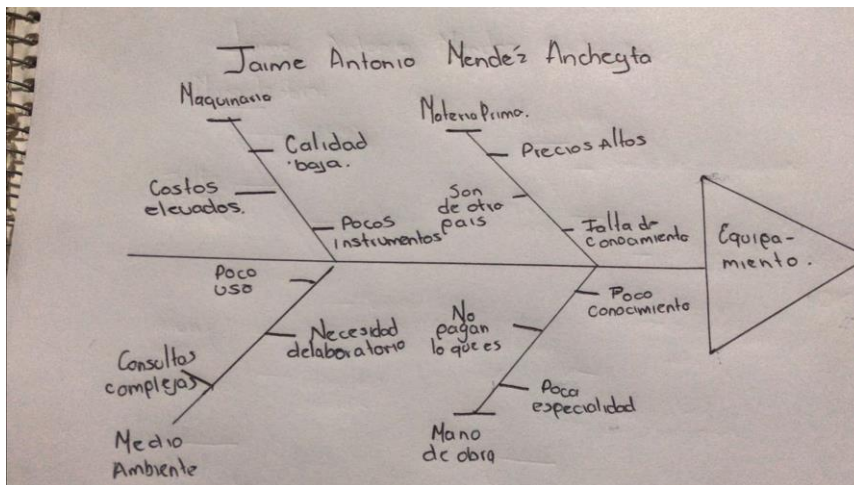 Jaime Antonio Mendéz Ancheyta
Maquinaria
Calidad
baja.
Costos
elevados.
Pocos
instrumentos
Materia Prima.
Precios Altos
Son
de otro
país
Falta de
conocamiento
Equipa-
miento.
Poco
uso
Necesidad
delaboratorio
Consultas
complejas
Medio
Ambiente
Poco
conocimiento
No
pagan
lo que es
Poca
especialidad
Mano
de obra